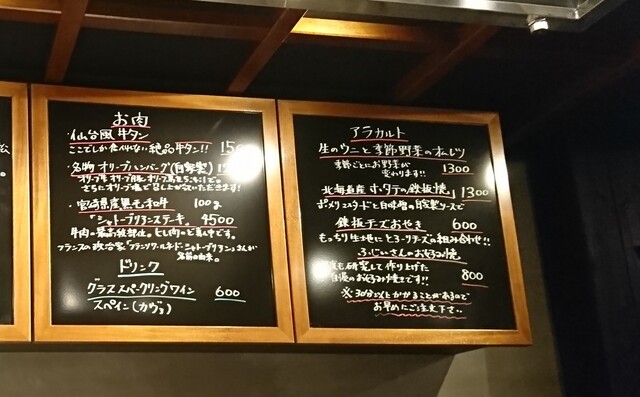 お肉
・仙台風牛タン
ここでしか食べれない絶品牛タン!!
・名物オリーブハンバーグ(自家製)
さらにオリーブ塩で召し上がっていただきます!
・宮崎県産黒毛和牛 100g
「シャトーブリアンステーキ」 4500
牛肉の最高級部位。ヒレ肉のど真ん中です。
フランスの政治家「フランソワ・ルネ・ド・シャトーブリアン」さんが
名前の由来。
ドリンク
グラススパークリングワイン 600
スペイン(カヴァ)
アラカルト
生のウニと季節野菜のオムレツ
季節ごとにお野菜が 1300
変わります!!
北海道産ホタテの鉄板焼 1300
ポメリーマスタードと白味噌の自家製ソースで
鉄板チーズおやき 600
もっちり生地にとろーりチーズの組み合わせ!!
ふじいさんのお好み焼
度も研究して作り上げた 800
自慢のお好み焼きです!!
※30分以上かかることがあるので
お早めにご注文下さい